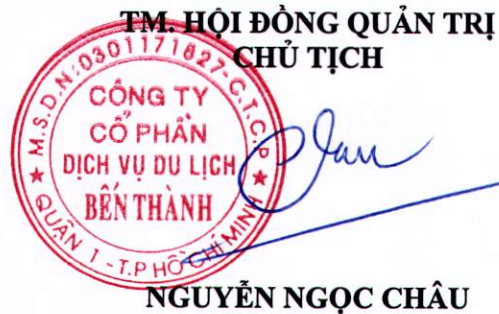 TM. HỘI ĐỒNG QUẢN TRỊ
CHỦ TỊCH
M.S.D.N:0301171827-C.T.C.P
CÔNG TY
CỔ PHẦN
DỊCH VỤ DU LỊCH
BẾN THÀNH
QUẬN 1 - T.P HỒ CHÍ MINH
NGUYỄN NGỌC CHÂU